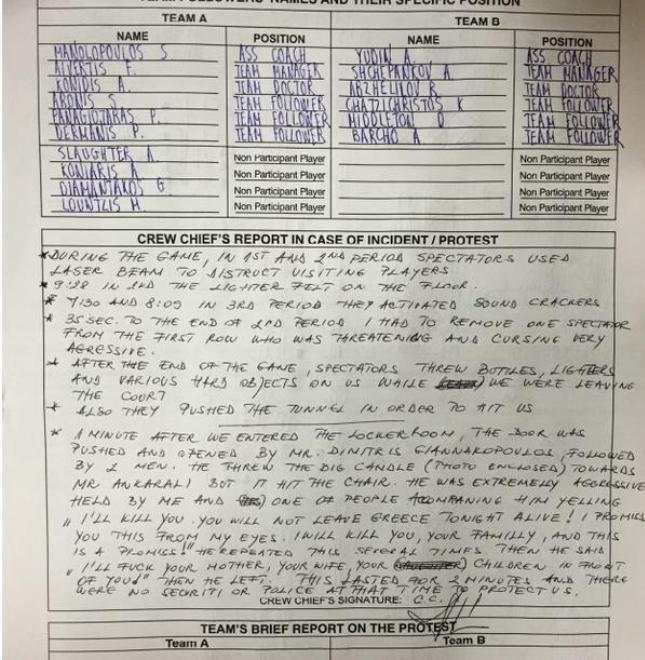 TEAM FOLLOWERS' NAMES AND THEIR SPECIFIC POSITION
TEAM A TEAM B
NAME POSITION NAME POSITION
MANOLOPOULOS S ASS COACH YUDIN A. ASS COACH
ALVERTIS F. TEAM MANAGER SHCHEPANKOV A. TEAM MANAGER
KONIDIS A. TEAM DOCTOR ABZHELILOV R. TEAM DOCTOR
ARONIS S. TEAM FOLLOWER CHATZICHRISTOS K TEAM FOLLOWER
PANAGIOTARAS P. TEAM FOLLOWER MIDDLETON D TEAM FOLLOWER
DERMANIS P. TEAM FOLLOWER BARCHO A. TEAM FOLLOWER
SLAUGHTER A. Non Participant Player Non Participant Player
KONIARIS A. Non Participant Player Non Participant Player
DIAMANTAKOS G Non Participant Player Non Participant Player
LOUNTZIS M. Non Participant Player Non Participant Player
CREW CHIEF'S REPORT IN CASE OF INCIDENT / PROTEST
* DURING THE GAME, IN 1ST AND 2ND PERIOD SPECTATORS USED
LASER BEAM TO DISTRUCT VISITING PLAYERS
* 9:28 IN 2ND THE LIGHTER FELT ON THE FLOOR.
* 7:30 AND 8:09 IN 3RD PERIOD THEY ACTIVATED SOUND CRACKERS
* 35 SEC. TO THE END OF 2ND PERIOD I HAD TO REMOVE ONE SPECTATOR
FROM THE FIRST ROW WHO WAS THREATENING AND CURSING VERY
AGRESSIVE.
* AFTER THE END OF THE GAME, SPECTATORS THREW BOTTLES, LIGHTERS
AND VARIOUS HARD OBJECTS ON US WHILE WE WERE LEAVING
THE COURT
* ALSO THEY PUSHED THE TUNNEL IN ORDER TO HIT US
* 1 MINUTE AFTER WE ENTERED THE LOCKERROOM, THE DOOR WAS
PUSHED AND OPENED BY MR. DIMITRIS GIANNAKOPOULOS, FOLLOWED
BY 2 MEN. HE THREW THE BIG CANDLE (PHOTO ENCLOSED) TOWARDS
MR ANKARALI BUT IT HIT THE CHAIR. HE WAS EXTREMELY AGGRESSIVE
HELD BY ME AND ONE OF PEOPLE ACOMPANING HIM YELLING
„ I'LL KILL YOU. YOU WILL NOT LEAVE GREECE TONIGHT ALIVE! I PROMISS
YOU THIS FROM MY EYES. I WILL KILL YOU, YOUR FAMILLY, AND THIS
IS A PROMISS!" HE REPEATED THIS SEVERAL TIMES. THEN HE SAID
„ I'LL FUCK YOUR MOTHER, YOUR WIFE, YOUR CHILDREN IN FRONT
OF YOU!" THEN HE LEFT. THIS LASTED FOR 2 MINUTES AND THERE
WERE NO SECURITI OR POLICE AT THAT TIME TO PROTECT US.
CREW CHIEF'S SIGNATURE: C.C.
TEAM'S BRIEF REPORT ON THE PROTEST
Team A Team B